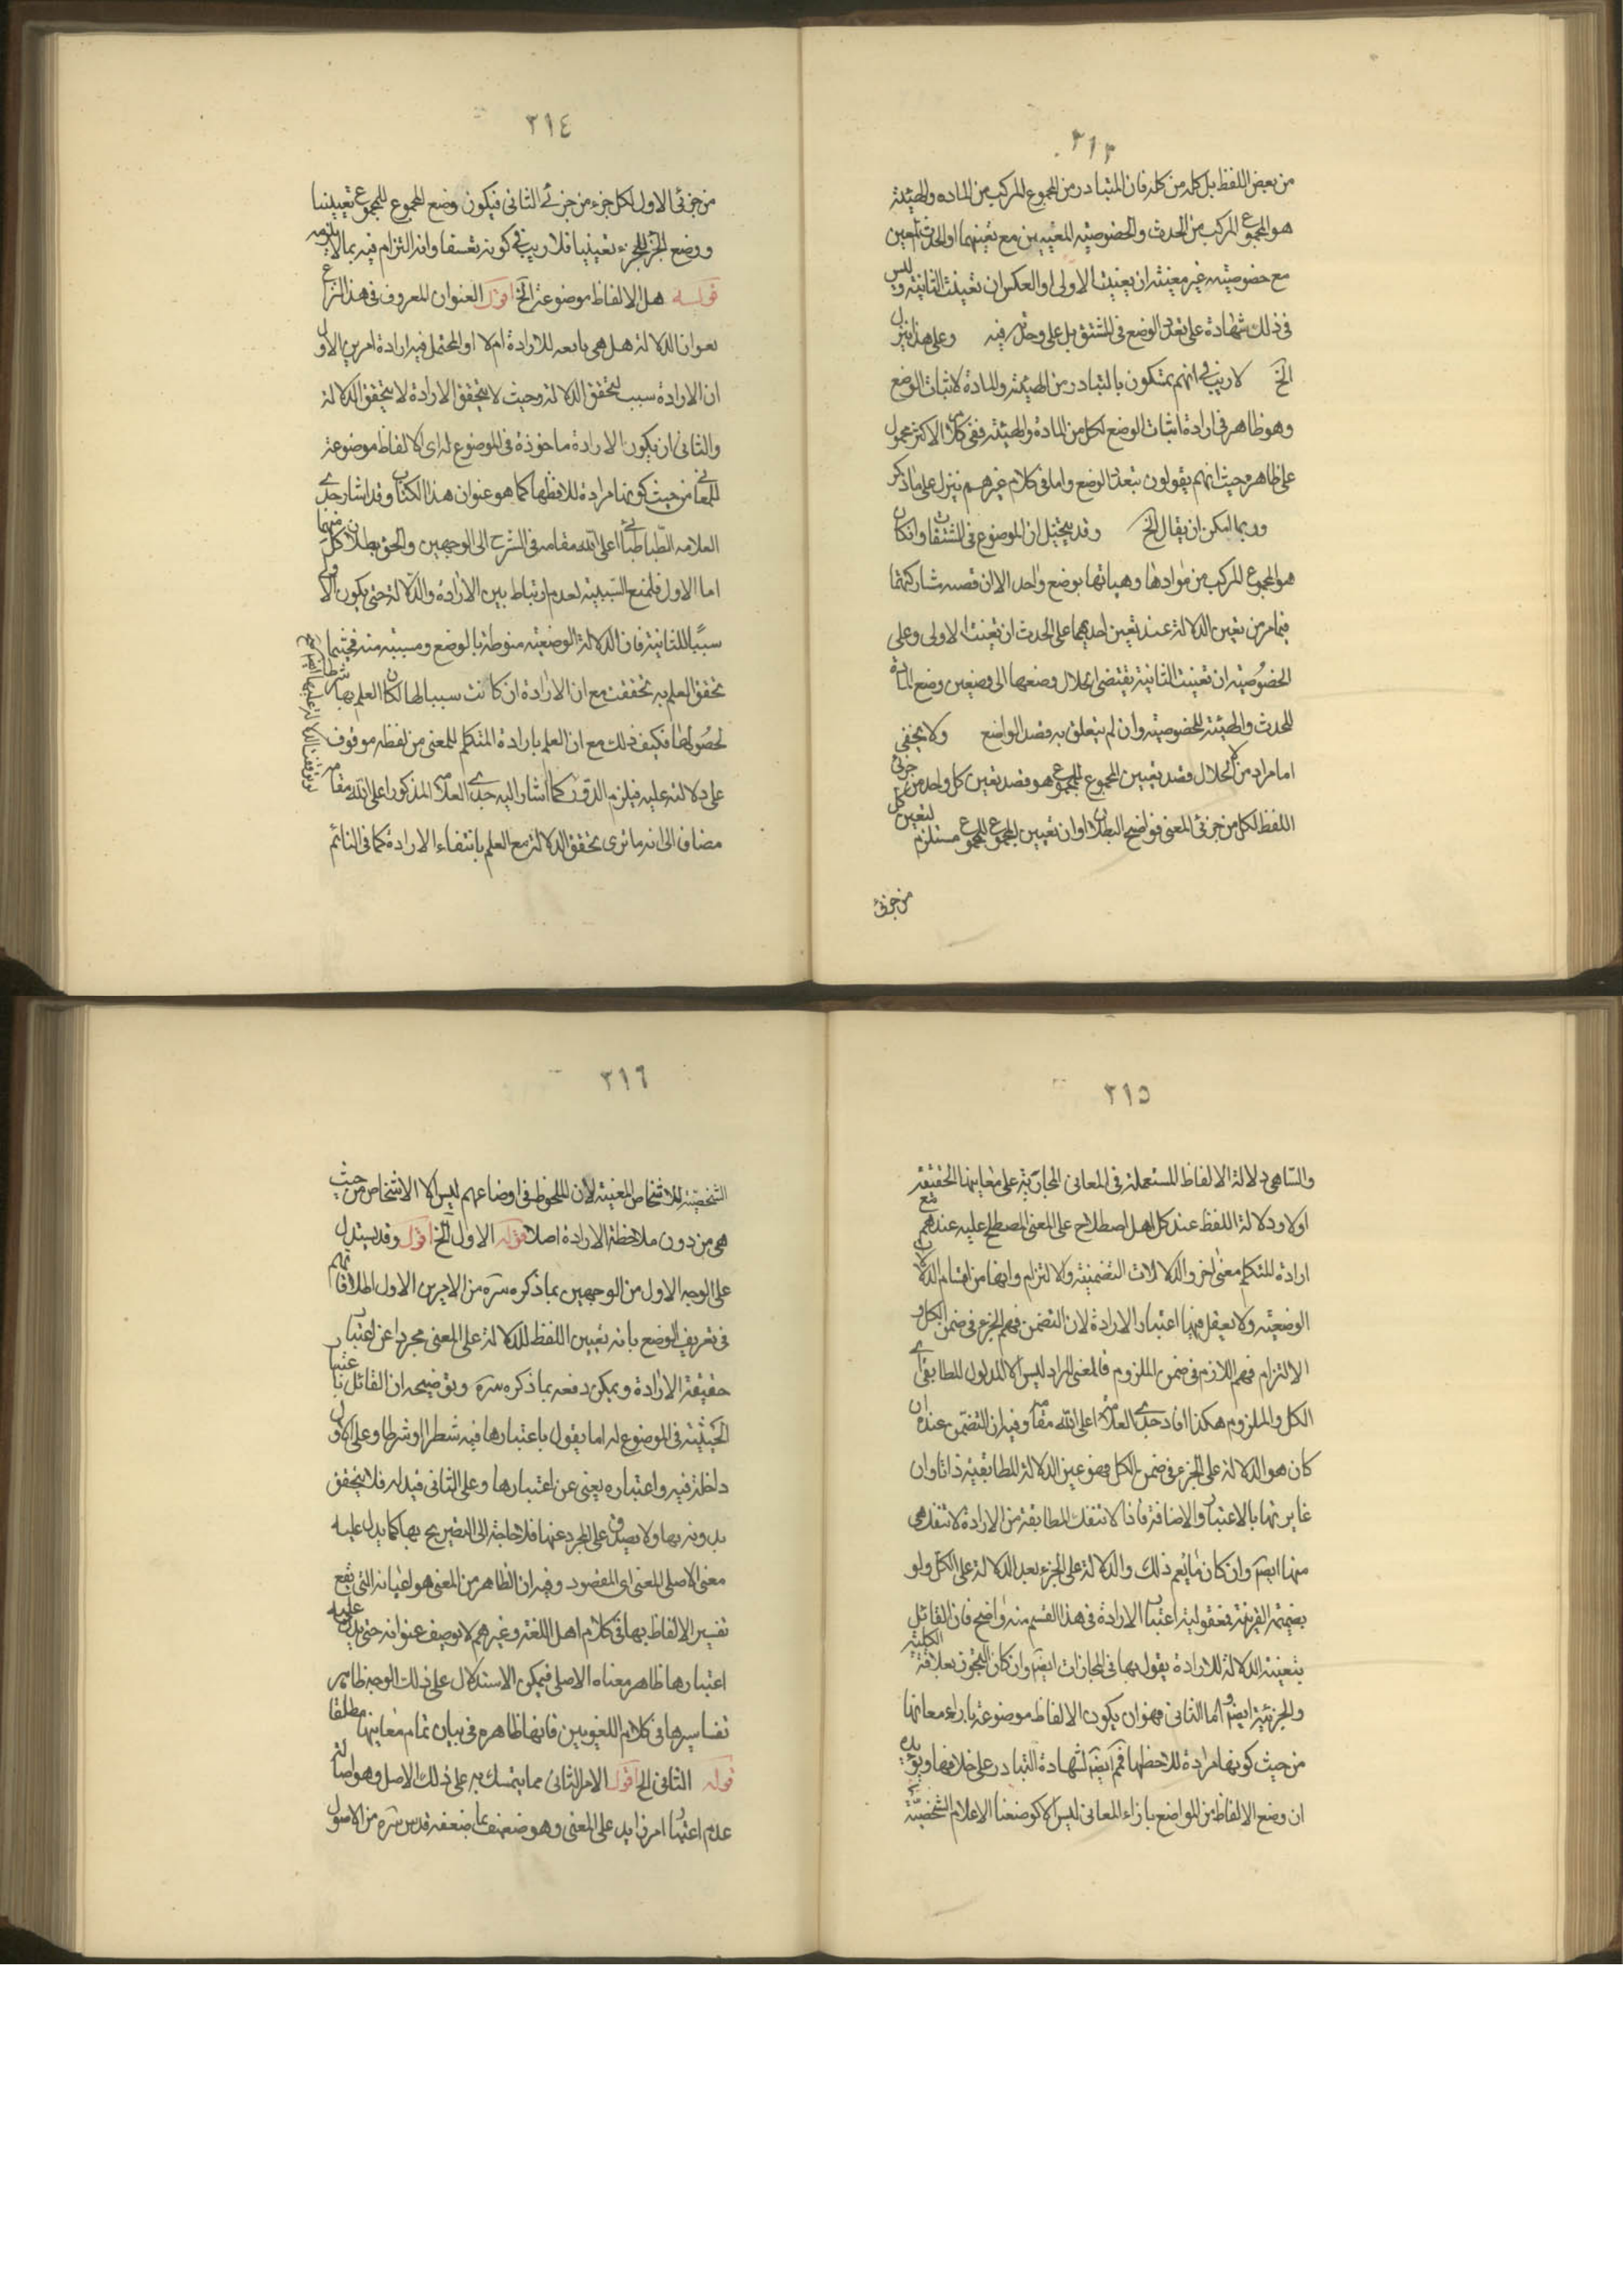 ٣١٣
من بعض اللفظ بل كله من كله فان المتبادر من المجموع المركب من الماده والهيئة
هو المجموع المركب من الحدث والخصوصيته المعينين مع تعينهما او الحدث المعين
مع خصوصيته غير معينة ان تعينت الاولى او العكس ان تعينت الثانية وليس
فى ذلك شهادة على تعدد الوضع فى المشتق بل على وحدته فيه وعلى هذا ينزل
الخ لا ريب فى انهم يتمسكون بالتبادر من الهيئة والمادة لاثبات الوضع
وهو ظاهر فى ارادة اثبات الوضع لكل من المادة والهيئة ففى كلام الاكثر محمول
على ظاهره حيث انهم يقولون بتعدد الوضع واما فى كلام غيرهم ينزل على ما ذكر
وربما امكن ان يقال الخ وقد يتخيل ان الموضوع فى المشتقات وان كان
هو المجموع المركب من موادها وهيئاتها بوضع واحد الا ان قصيه مشاركتها
فيما مر من تعين الدلالة عند تعين احديهما على الحدث ان تعينت الاولى وعلى
الخصوصيته ان تعينت الثانية يقتضى انحلال وضعها الى وضعين وضع المادة
للحدث والهيئة للخصوصيته وان لم يتعلق به قصد الواضع ولا يخفى
اما مراد من الانحلال قصد تعيين المجموع للمجموع هو قصد تعين كل واحد من جزئى
اللفظ لكل من جزئى المعنى فواضح البطلان او ان تعيين المجموع للمجموع مستلزم لتعين كل
من جزئى
٣١٤
من جزئى الاول لكل جزء من جزئى الثانى فيكون وضع المجموع للمجموع تعيينيا
ووضع الجزء للجزء تعينيا فلا ريب فى كونه تعسفا وانه التزام فيه بما لا يلزمه
قوله هل الالفاظ موضوعة الخ اقول العنوان المعروف فى هذا النزاع
بعنوان الدلالة هل هى تابعه للارادة ام لا او المحتمل فيه ارادة امرين الاول
ان الارادة سبب لتحقق الدلالة وحيث لا يتحقق الارادة لا يتحقق الدلالة
والثانى ان يكون الارادة ماخوذة فى الموضوع له اى الالفاظ موضوعة
للمعانى من حيث كونها مرادة للافظها كما هو عنوان هذا الكتاب وقد اشار جدى
العلامه الطباطبائى اعلى الله مقامه فى الشرح الى الوجهين والحق بطلان كل منهما
اما الاول فلمنع السببية لعدم ارتباط بين الارادة والدلالة حتى يكون الاولى
سببا للثانية فان الدلالة الوضعيته منوطة بالوضع ومسببه منه فحيثما
تحقق العلم به تحققت مع ان الارادة ان كانت سببا لها لكان العلم بها شرطا
لحصولها فكيف ذلك مع ان العلم بارادة المتكلم للمعنى من لفظه موقوف
على دلالته عليه فيلزم الدور كما اشار اليه جدى العلامة المذكور اعلى الله مقامه
مضاف الى انه ما نرى تحقق الدلالة مع العلم بانتفاء الارادة كما فى النائم
٣١٥
والساهى دلالة الالفاظ المستعملة فى المعانى المجازية على معاينها الحقيقة
اولا ودلالة اللفظ عند كل اهل اصطلاح على المعنى المصطلح عليه عندهم مع
ارادة المتكلم معنى اخر والدلالات التضمنيته والالتزام وانها من اقسام الدلالات
الوضعيته ولا يعقل فيها اعتبار الارادة لان التضمن فهم الجزء فى ضمن الكل و
الالتزام فهم اللازم فى ضمن الملزوم فالمعنى المراد ليس الا المدلول المطابقى اى
الكل والملزوم هكذا افاد جدى العلامة اعلى الله مقامه وفيه ان التضمن عنده ان
كان هو الدلالة على الجزء فى ضمن الكل فهو عين الدلالة المطابقيه ذاتا وان
غايرتها بالاعتبار والاضافة فاذا لا تنفك المطابقة من الارادة لا تنفك هى
منها ايضا وان كان ما يعم ذلك والدلالة على الجزء بعد الدلالة على الكل ولو
بضميمة القرينة فمعقولية اعتبار الارادة فى هذا القسم منه واضح فان القائل
بتعيته الدلالة للارادة يقول بها فى المجازات ايضا وان كان التجوز بعلاقة الكلية
والجزئية ايضا واما الثانى فهو ان يكون الالفاظ موضوعة بازاء معانيها
من حيث كونها مرادة للاحظها فمم ايضا لشهادة التبادر على خلافها ويؤيده
ان وضع الالفاظ من المواضع بازاء المعانى ليس الا كوضعنا الاعلام الشخصية
٣١٦
الشخصية للاشخاص المعينة لان الملحوظ فى اوضاعهم ليس الا الاشخاص من حيث
هى من دون ملاحظة الارادة اصلا قوله الاول الخ اقول وقد يستدل
على الوجه الاول من الوجهين بما ذكره سره من الاجرين الاول اطلاقاتهم
فى تعريف الوضع بانه تعيين اللفظ للدلالة على المعنى مجردا عن اعتبار
حقيقة الارادة ويمكن دفعه بما ذكره سره وتوضيحه ان القائل باعتبار
الحيثية فى الموضوع له اما يقول باعتبارها فيه شطرا او شرطا وعلى الاول
داخلة فيه واعتباره يعنى عن اعتبارها وعلى الثانى قيد له فلا يتحقق
بدونه بها ولا يصدق على المجرد عنها فلا حاجة الى التصريح بها كما يدل عليه
معنى الاصلى للمعنى اى المقصود وفيه ان الظاهر من المعنى هو اعيانه التى يقع
تفسير الالفاظ بها فى كلام اهل اللغة وغيرهم لا توصيف عنوانه حتى يدل عليه
اعتبارها ظاهر معناه الاصلى فيمكن الاستدلال على ذلك الوجه ظاهر
تفاسيرها فى كلام اللغويين فانها ظاهره فى بيان تمام معاينها مطلقا
قوله الثانى الخ اقول الامر الثانى مما يتمسك به على ذلك الاصل وهو اصالة
عدم اعتبار امر زايد على المعنى وهو ضعيف بما ضعفه قدس سره من الاصول